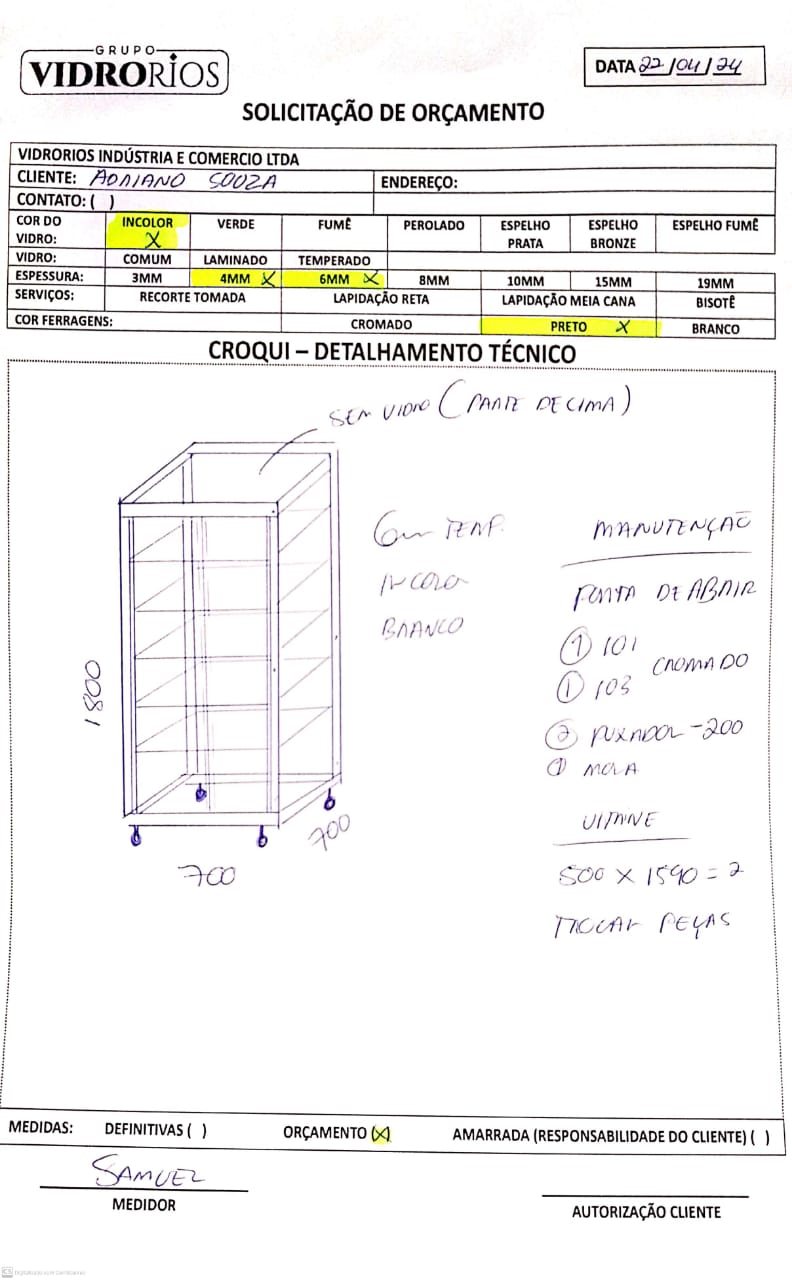 GRUPO
VIDRORIOS
DATA 22/04/24
SOLICITAÇÃO DE ORÇAMENTO
VIDRORIOS INDÚSTRIA E COMERCIO LTDA
CLIENTE: ADRIANO SOUZA ENDEREÇO:
CONTATO: ( )
COR DO VIDRO: INCOLOR X VERDE FUMÊ PEROLADO ESPELHO PRATA ESPELHO BRONZE ESPELHO FUMÊ
VIDRO: COMUM LAMINADO TEMPERADO
ESPESSURA: 3MM 4MM X 6MM X 8MM 10MM 15MM 19MM
SERVIÇOS: RECORTE TOMADA LAPIDAÇÃO RETA LAPIDAÇÃO MEIA CANA BISOTÊ
COR FERRAGENS: CROMADO PRETO X BRANCO
CROQUI – DETALHAMENTO TÉCNICO
SEM VIDRO (PARTE DE CIMA)
6m TEMP.
INCOLOR
BRANCO
1800
700
700
MANUTENÇÃO
PORTA DE ABRIR
1 101
CROMADO
1 103
2 PUXADOR - 200
1 MOLA
VITRINE
500 X 1590 = 2
TROCAR PEÇAS
MEDIDAS: DEFINITIVAS ( ) ORÇAMENTO (X) AMARRADA (RESPONSABILIDADE DO CLIENTE) ( )
SAMUEL
MEDIDOR
AUTORIZAÇÃO CLIENTE
CS Digitalizado com CamScanner